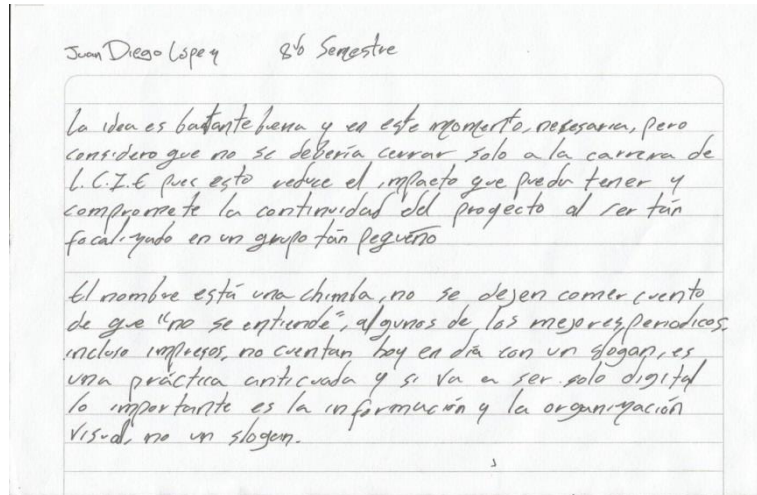 Juan Diego López 8vo Semestre
La idea es bastante buena y en este momento, necesaria, pero
considero que no se debería cerrar solo a la carrera de
L.C.I.E pues esto reduce el impacto que pueda tener y
compromete la continuidad del proyecto al ser tán
focalizado en un grupo tán pequeño
El nombre está una chimba, no se dejen comer cuento
de que "no se entiende", algunos de los mejores periodicos,
incluso impresos, no cuentan hoy en día con un slogan, es
una práctica anticuada y si va a ser solo digital
lo importante es la información y la organización
visual, no un slogan.